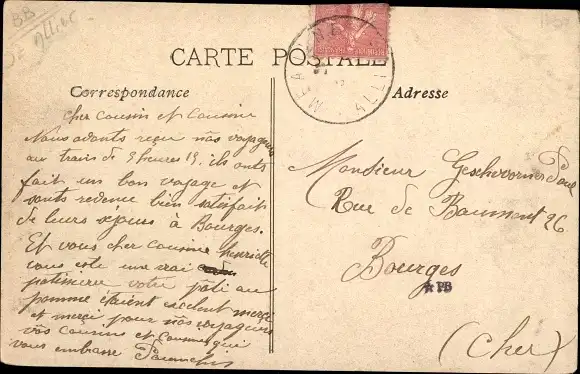 BB
CARTE POSTALE
Correspondance
Adresse
Cher Cousin et Cousine
Nous adonts reçu nos voyageurs
au train de 5 heures 19. ils onts
fait un bon voyage et
sonts revenue bien satisfait
de leurs séjours à Bourges.
Et vous cher cousine henriette
vous ete une vrai
patissiere votre pâti au
pomme étaient excelent merci
et merci pour nos voyageurs
vos cousins et cousines qui
vous embrasse
Monsieur Paul
Rue de Baumont 26
Bourges
PB
(Cher)